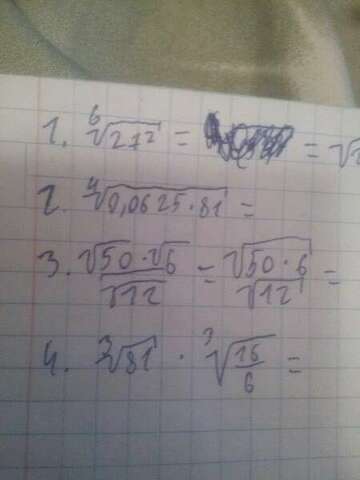 1. ⁶√27² = = √
2. ⁴√0,0625·81 =
3. √50·√6/√12 = √50·6/√12 =
4. ³√81 · ³√16/6 =